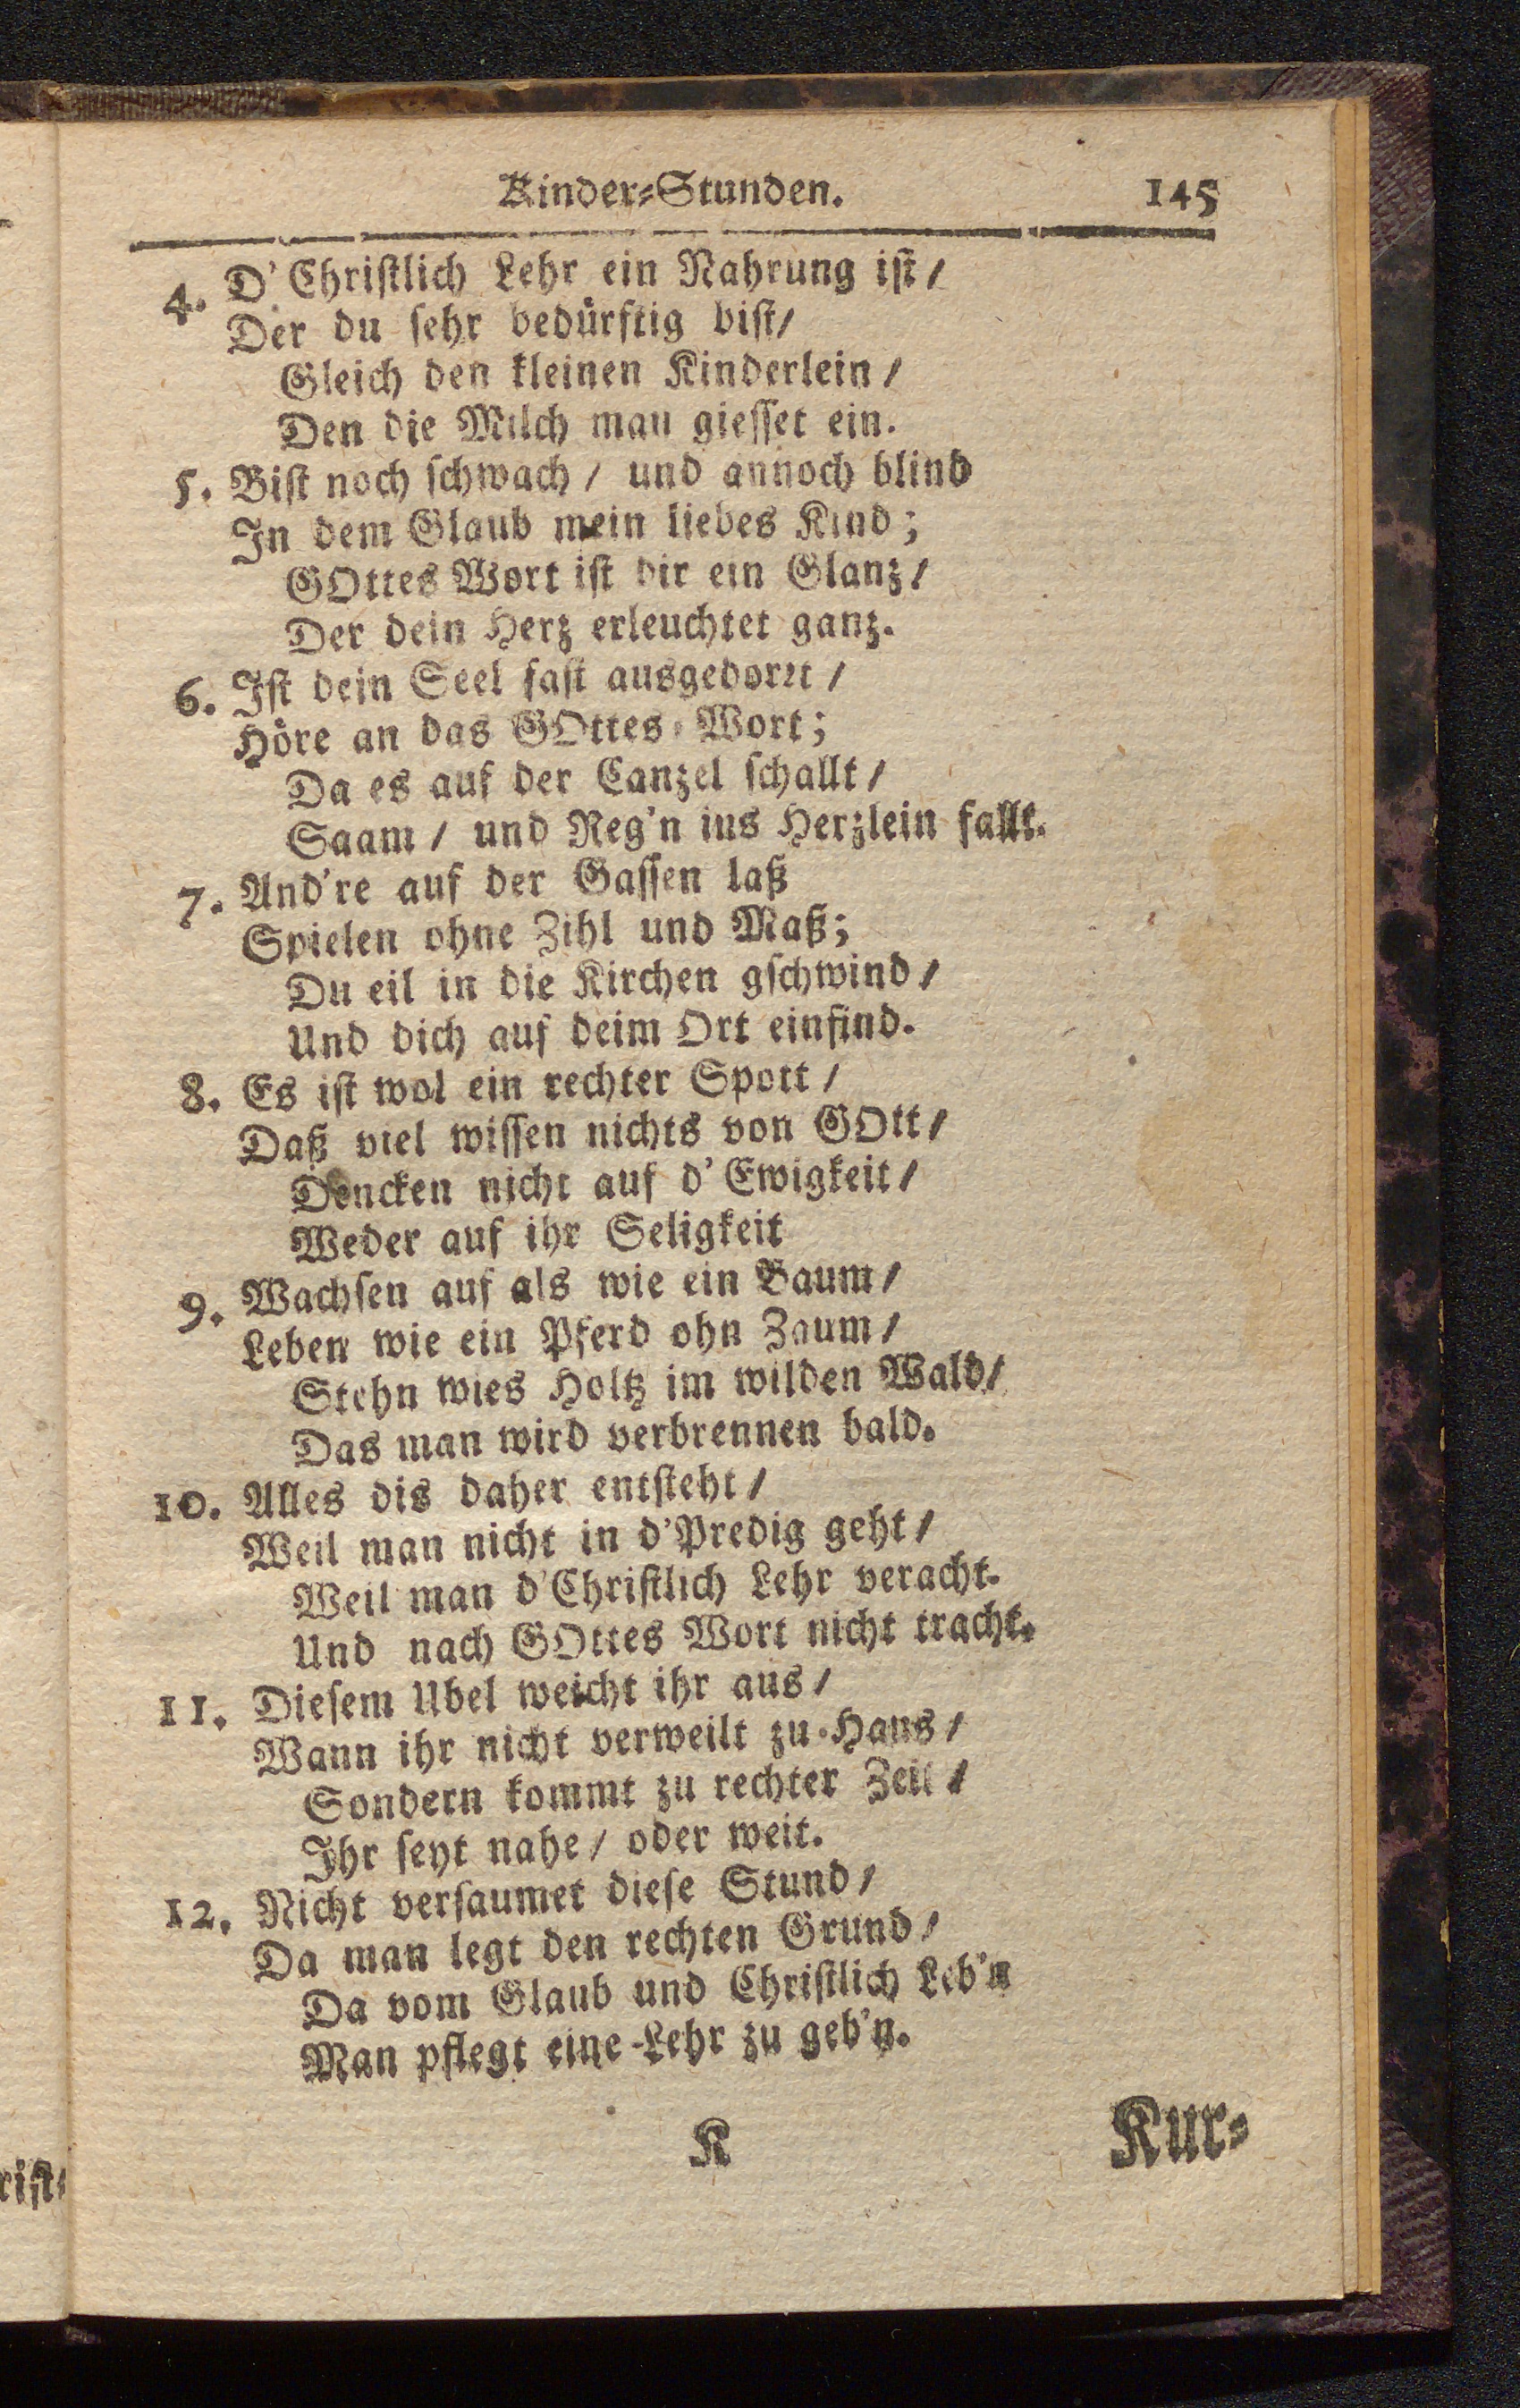 Kinder-Stunden. 145
4. D' Christlich Lehr ein Nahrung ist /
Der du sehr bedürftig bist/
Gleich den kleinen Kinderlein /
Den die Milch man giesset ein.
5. Bist noch schwach / und annoch blind
In dem Glaub mein liebes Kind;
GOttes Wort ist dir ein Glanz /
Der dein Herz erleuchtet ganz.
6. Ist dein Seel fast ausgedorrt /
Höre an das GOttes-Wort;
Da es auf der Canzel schallt /
Saam / und Reg'n ins Herzlein fallt.
7. And're auf der Gassen laß
Spielen ohne Zihl und Maß;
Du eil in die Kirchen gschwind /
Und dich auf deim Ort einfind.
8. Es ist wol ein rechter Spott /
Daß viel wissen nichts von GOtt /
Dencken nicht auf d' Ewigkeit /
Weder auf ihr Seligkeit
9. Wachsen auf als wie ein Baum /
Leben wie ein Pferd ohn Zaum /
Stehn wies Holtz im wilden Wald/
Das man wird verbrennen bald.
10. Alles dis daher entsteht /
Weil man nicht in d'Predig geht /
Weil man d'Christlich Lehr veracht.
Und nach GOttes Wort nicht tracht.
11. Diesem Ubel weicht ihr aus /
Wann ihr nicht verweilt zu-Haus /
Sondern kommt zu rechter Zeit /
Ihr seyt nahe / oder weit.
12. Nicht versaumet diese Stund /
Da man legt den rechten Grund /
Da vom Glaub und Christlich Leb'n
Man pflegt eine-Lehr zu geb'n.
K Kur-
rist-